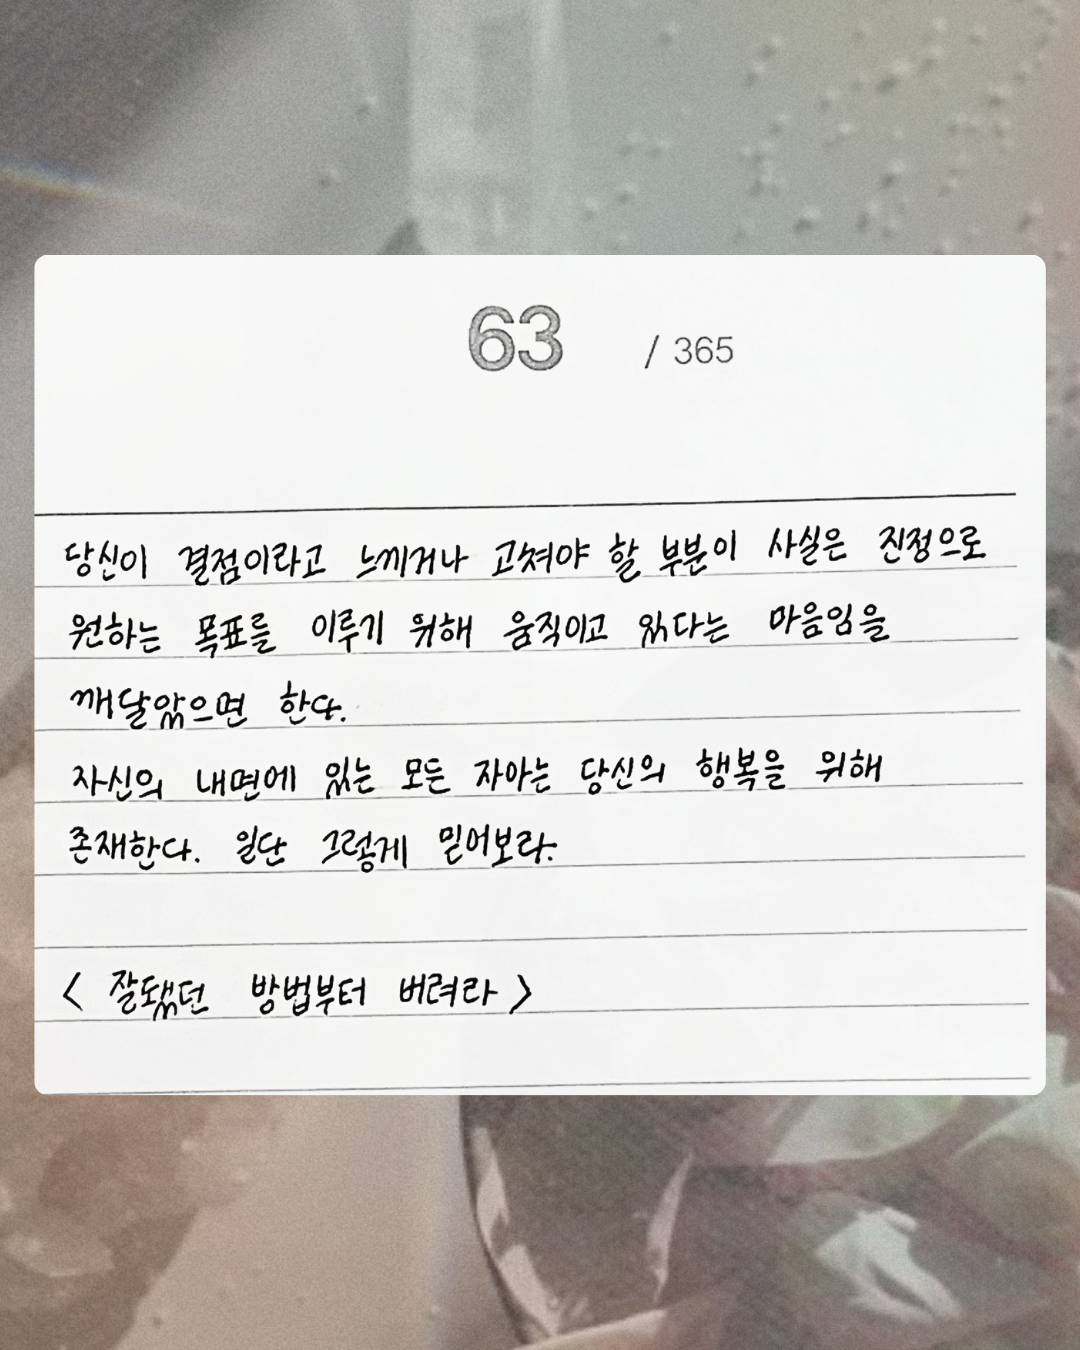 63 / 365
당신이 결점이라고 느끼거나 고쳐야 할 부분이 사실은 진정으로
원하는 목표를 이루기 위해 움직이고 있다는 마음임을
깨달았으면 한다.
자신의 내면에 있는 모든 자아는 당신의 행복을 위해
존재한다. 일단 그렇게 믿어보라.
< 잘됐던 방법부터 버려라 >